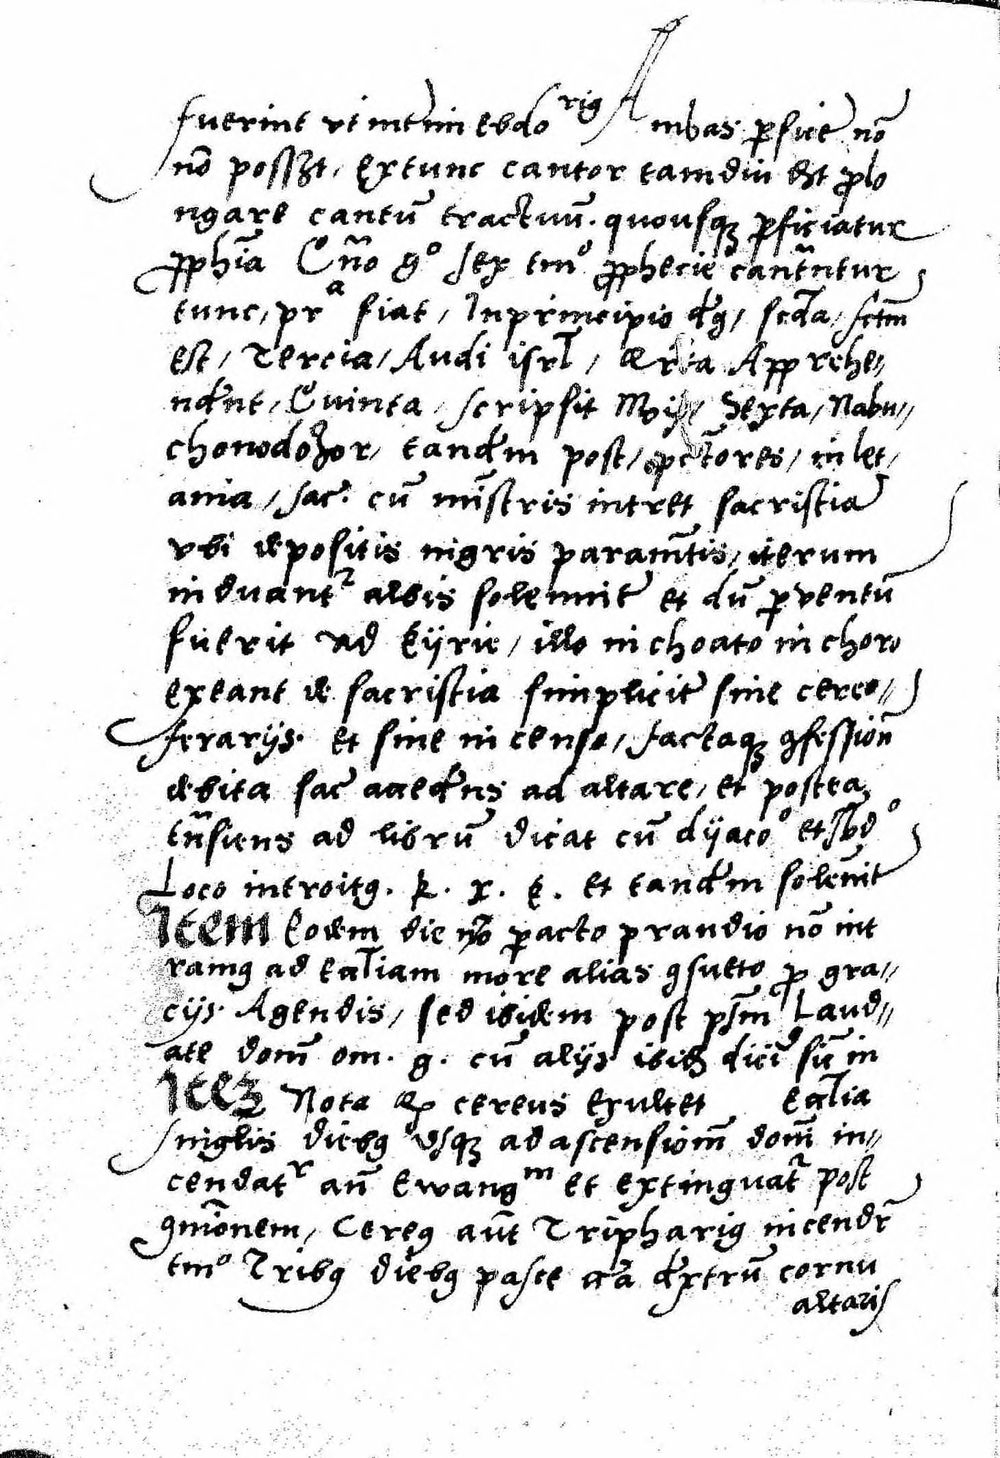 fuerint vt int̄ im ebdo rig Ambas ꝑficē nō
nō possꝫt / Extunc cantor tamdiu dꝫt ꝓlo
ngare cantū tractuū . quousqꝫ ꝑficiatur
ꝓphīa Qn̄o gͦ sex tmͦ ꝓphecie cantn̄tur
tunc / prᵃ fiat / Inprincipio dꝰ / scd̄a / fctm̄
est / Tercia / Audi isrl̄ / Apprehe⸗
nd̄nt / Quinta / scripsit Moi / Sexta / Nabu⸗
chonodoꝫor / tand̄m post / in let /
ania / sac̄ . cū mīstris intret sacristiā
vbi depositis nigris paramn̄tis / iterum
induantʳ albis solennit̄ et dū ꝑventū
fuerit ad kyrie / illo inchoato in choro
exeant de sacristia simplicit̄ sine cereo⸗
ferarijs . et sine incenso / factaqꝫ ꝯfession̄
debita sac̄ accedn̄s ad altare / et postea
tn̄siens ad librū dicat cū dyacoͦ et sb̄dͦ
Loco introitꝰ . k . x . k . et tand̄m solen̄it̄
Item Eodem die ꝑacto prandio nō int
ramꝰ ad eccl̄iam more alias ꝯsueto ꝓ gra⸗
cijs Agendis / sed ibidem post ps̄m Laud⸗
ate dom̄ om . g . cū alijs ibid̄ dici sū in
Iteꝫ Nota ꝙ cereus exultet eccl̄ia
singlis diebꝰ vsqꝫ ad ascensionm̄ dom̄ in⸗
cendatʳ an̄ Ewangᵐ et extinguat̄ post
ꝯmīonem / Cereꝰ aūt Tripharīg incendr̄
tmͦ Tribꝰ diebꝰ pasce cc̄a dextrū cornu
altaris